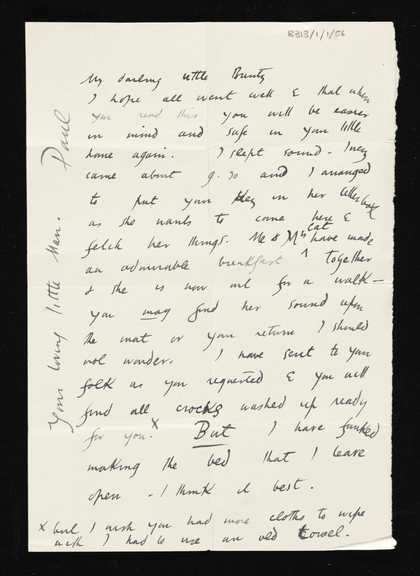 8313/1/1/06
My darling little Bunty
I hope all went well & that when
you read this you will be easier
in mind and safe in your little
home again. I slept sound - Lucy
came about 9.30 and I arranged
to put your key in her letterbox
as she wants to come here &
fetch her things. Me & Mrs Cat have made
an admirable breakfast together
& she is now out for a walk —
you may find her sound upon
the mat on your return I should
not wonder. I have sent to your
folk as you requested & you will
find all crocks washed up ready
for you.x But I have funked
making the bed that I leave
open - I think it best.
x but I wish you had more cloths to wipe
with I had to use an old towel.
Your loving little Man. Paul